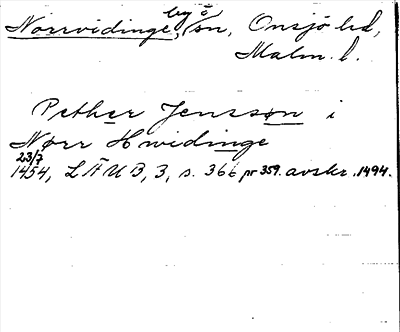 Norrvidinge, by o sn, Onsjö hd,
Malm. l.
Pether Jensson i
Nørr Hwidinge
23/7
1454, LÄUB, 3, s. 366 nr 359. avskr. 1494.